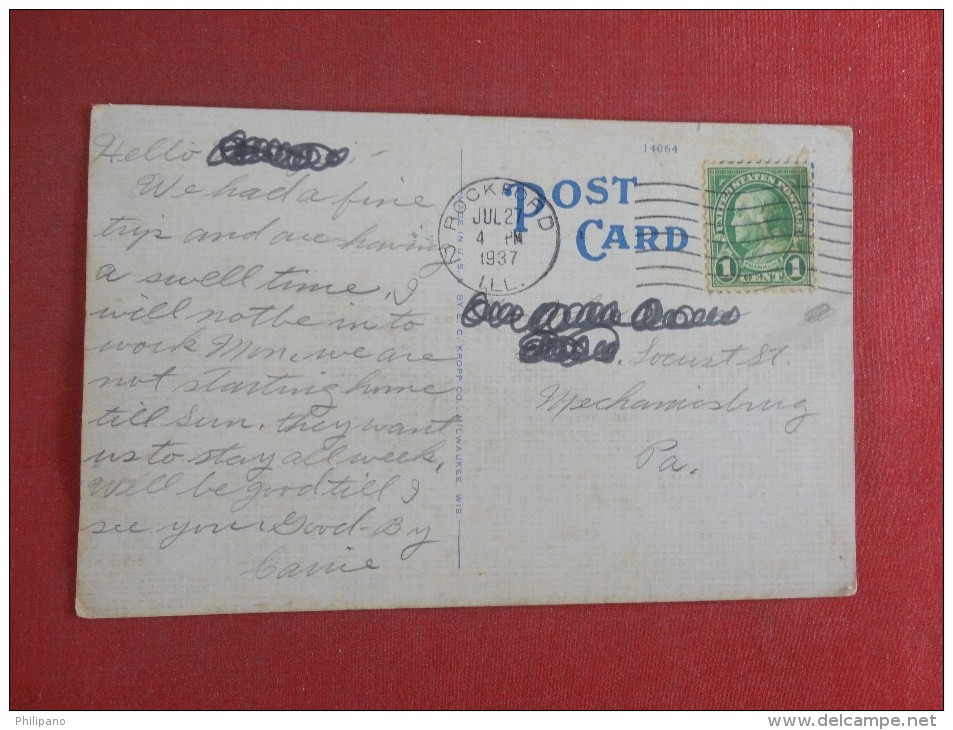 Hello
We had a fine
trip and are having
a swell time. I
will not be in to
work Mon. we are
not starting home
till Sun. they want
us to stay all week.
Will be good till I
see you. Good-By
Carrie
MADE IN U.S. BY E. C. KROPP CO. MILWAUKEE, WIS.
14064
POST
CARD
ROCKFORD
JUL 27
4 PM
1937
ILL.
UNITED STATES POSTAGE
FRANKLIN
1 CENT 1
Locust St.
Mechanicsburg
Pa.
Philipano
www.delcampe.net